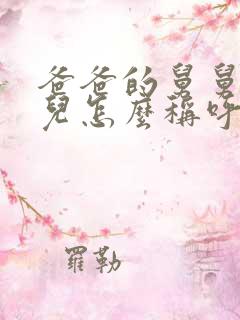 爸爸的舅舅
兒怎麼稱呼
羅勒